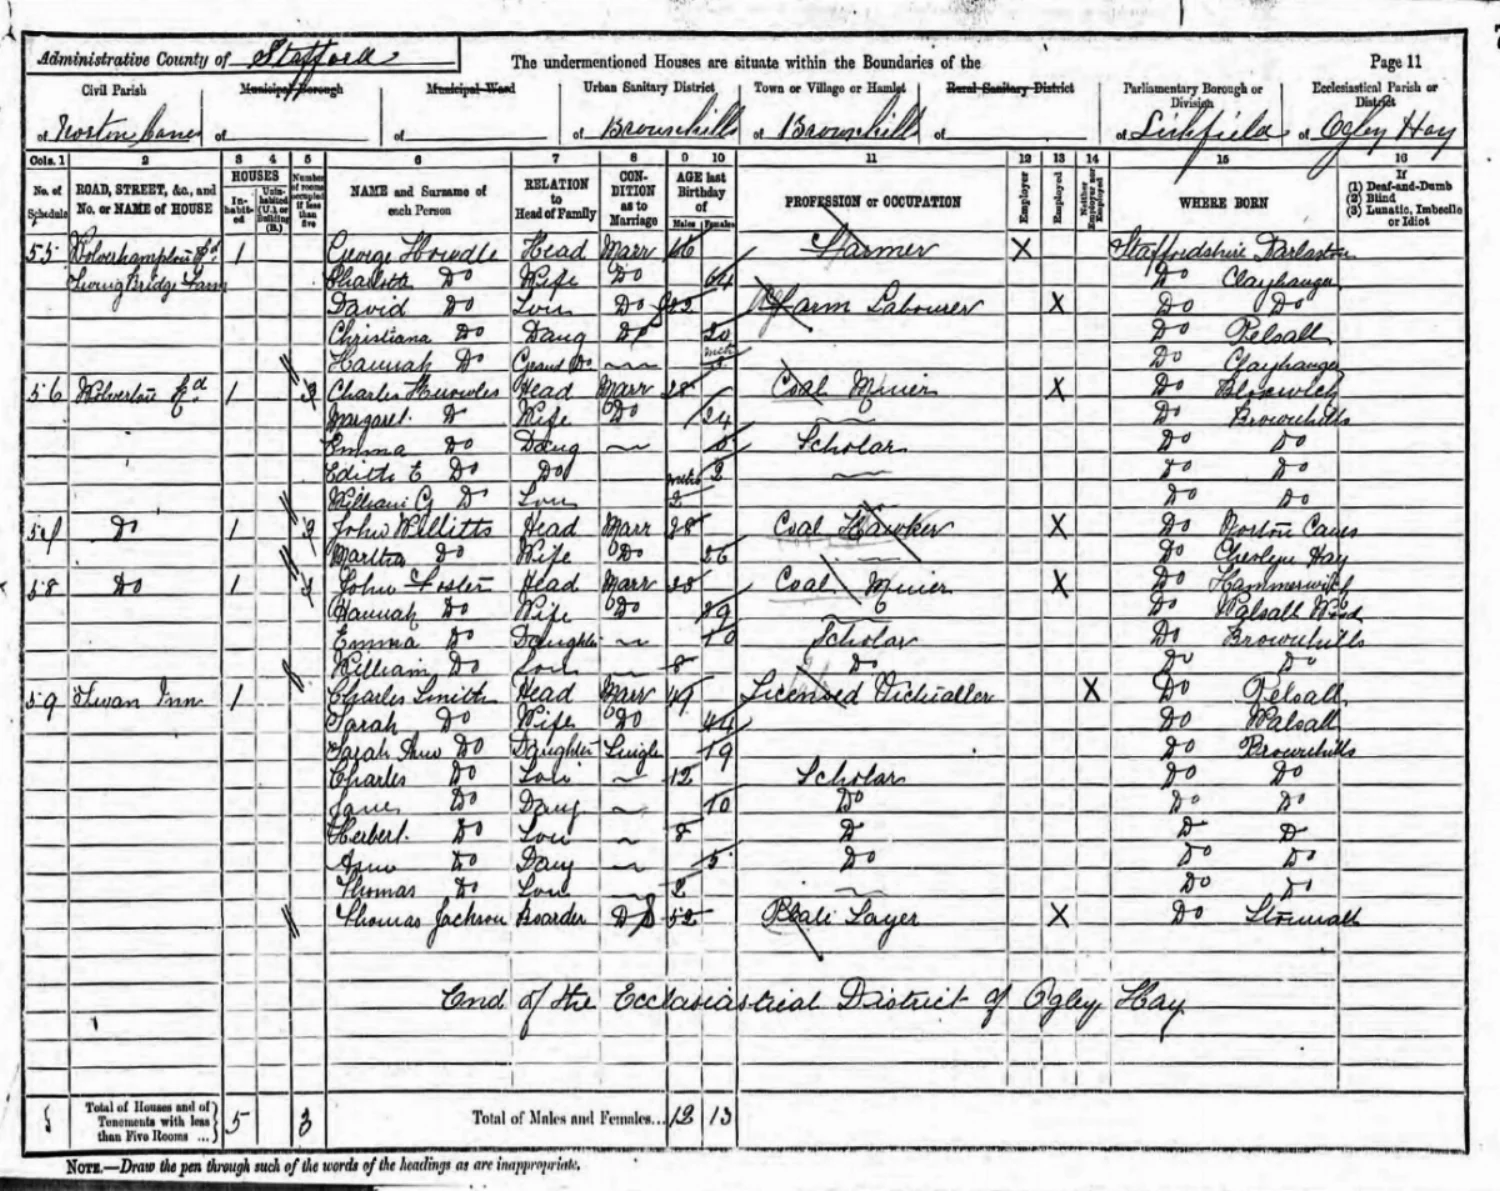 Administrative County of Stafford
The undermentioned Houses are situate within the Boundaries of the
Page 11
Civil Parish
Municipal Borough
Municipal Ward
Urban Sanitary District
Town or Village or Hamlet
Rural Sanitary District
Parliamentary Borough or Division
Ecclesiastical Parish or District
of Norton Canes of of of Brownhills of Brownhills of of Lichfield of Ogley Hay
Cols. 1 2 3 4 5 6 7 8 9 10 11 12 13 14 15 16
No. of Schedule
ROAD, STREET, &c., and No. or NAME of HOUSE
HOUSES
In-habit-ed
Unin-habited (U.) or Building (B.)
Number of rooms occupied if less than five
NAME and Surname of each Person
RELATION to Head of Family
CON-DITION as to Marriage
AGE last Birthday of
Males Females
PROFESSION or OCCUPATION
Employer
Employed
Neither Employer nor Employed
WHERE BORN
If (1) Deaf-and-Dumb (2) Blind (3) Lunatic, Imbecile or Idiot
55 Wolverhampton Rd 1 George Howdle Head Marr 66 Farmer X Staffordshire Darlaston
Swing Bridge Farm Charlotta Do Wife Do 64 Do Clayhanger
David Do Son Do S 22 Farm Labourer X Do Do
Christiana Do Daug Do 20 Do Pelsall
Hannah Do Grand Do mths Do Clayhanger
56 Wolverton Rd 1 3 Charles Knowles Head Marr 28 Coal Miner X Do Bloxwich
Margaret Do Wife Do 24 Do Brownhills
Emma Do Daug Scholar Do Do
Edith E Do Do 2 Do Do
William G Do Son mths 2 Do Do
57 Do 1 3 John Willitts Head Marr 28 Coal Hawker X Do Norton Canes
Martha Do Wife Do 26 Do Cheslyn Hay
58 Do 1 3 John Foster Head Marr 28 Coal Miner X Do Hammerwich
Hannah Do Wife Do 29 Do Walsall Wood
Emma Do Daughter 10 Scholar Do Brownhills
William Do Son 8 Do Do Do
59 Swan Inn 1 Charles Smith Head Marr 49 Licensed Victualler X Do Pelsall
Sarah Do Wife Do 44 Do Walsall
Sarah Ann Do Daughter Single 19 Do Brownhills
Charles Do Son 12 Scholar Do Do
Jane Do Daug 10 Do Do Do
Herbert Do Son 8 Do Do Do
Ann Do Daug 5 Do Do Do
Thomas Do Son 2 Do Do
Thomas Jackson Boarder Do S 52 Layer X Do Stonnall
End of the Ecclesiastical District of Ogley Hay
5 Total of Houses and of Tenements with less than Five Rooms ... 5 3 Total of Males and Females... 12 13
NOTE.—Draw the pen through such of the words of the headings as are inappropriate.